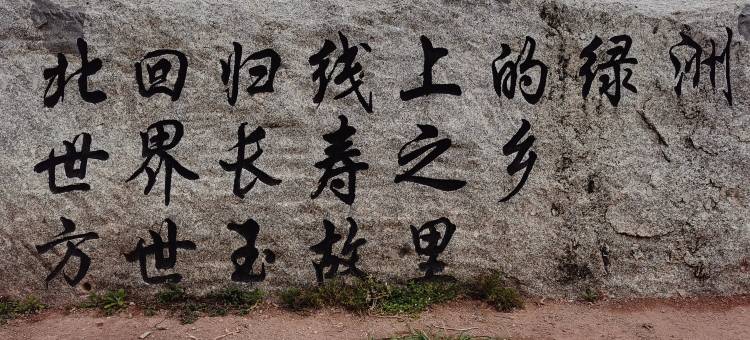 北回归线上的绿洲
世界长寿之乡
方世玉故里